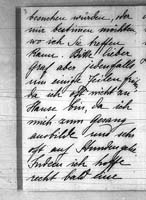 besuchen würden, oder
mir bestimmen möchten
wo ich Sie treffen
kann. Bitte lieber
jedenfalls
um einige Zeilen
da ich oft nicht zu
Hause bin, da ich
mich zum Gesang
ausbilde und sehr
oft auf Stunden gehe
Indem ich hoffe
recht bald